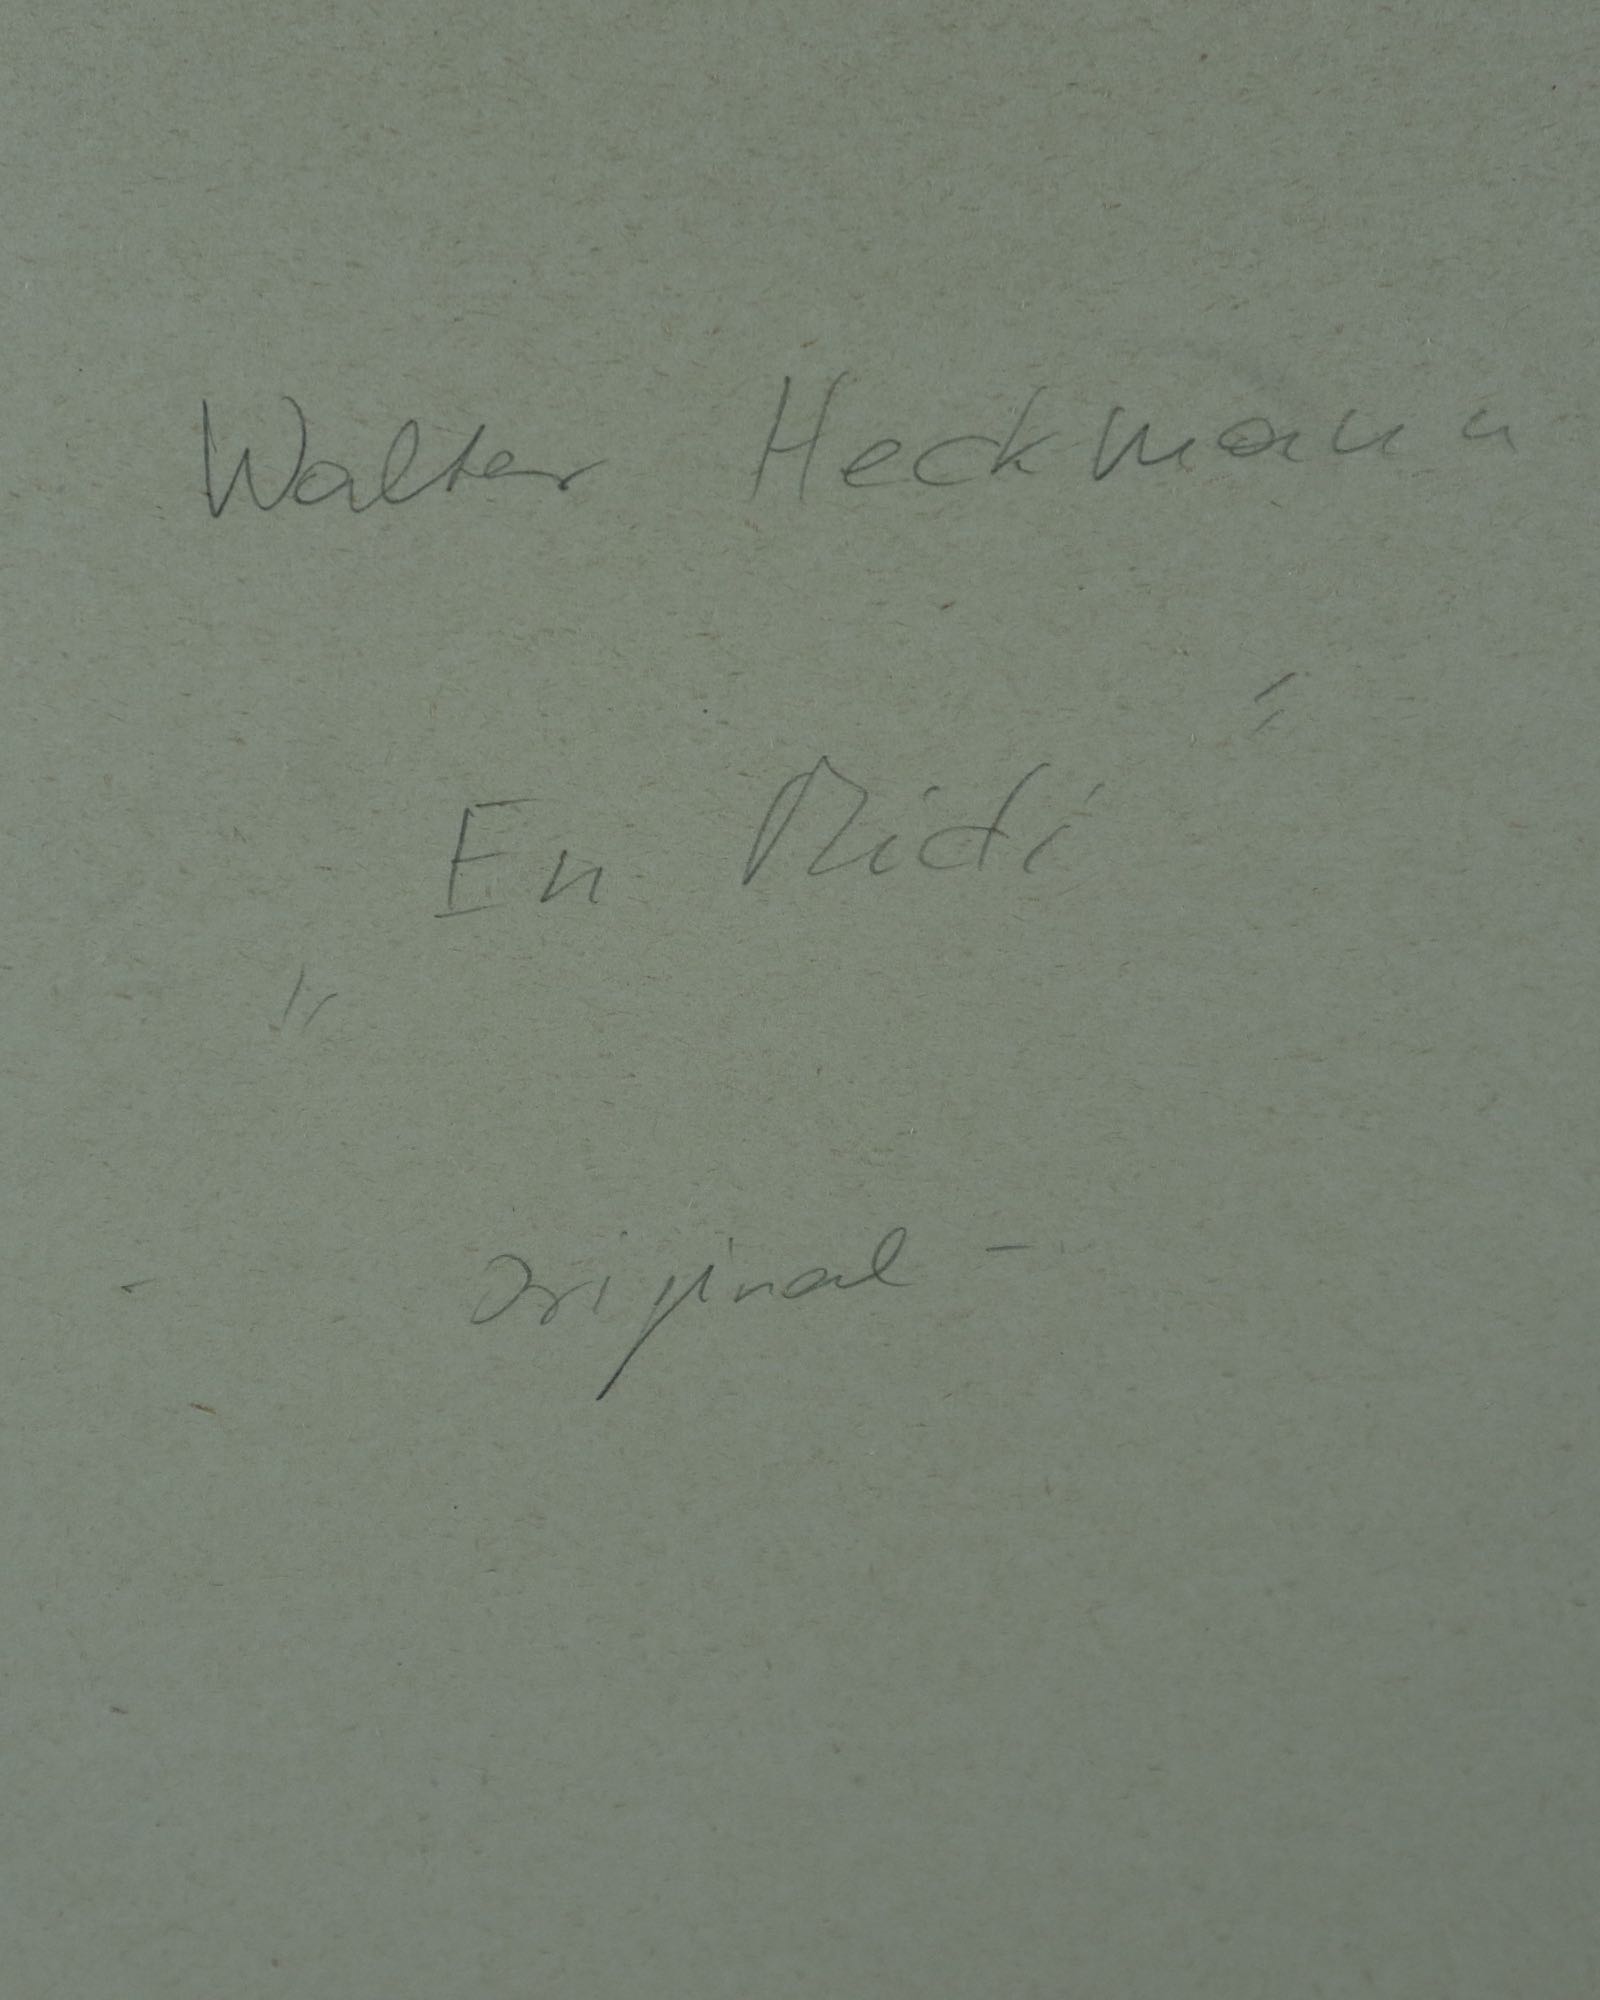 Walter Heckmann
„En Midi“
- original -